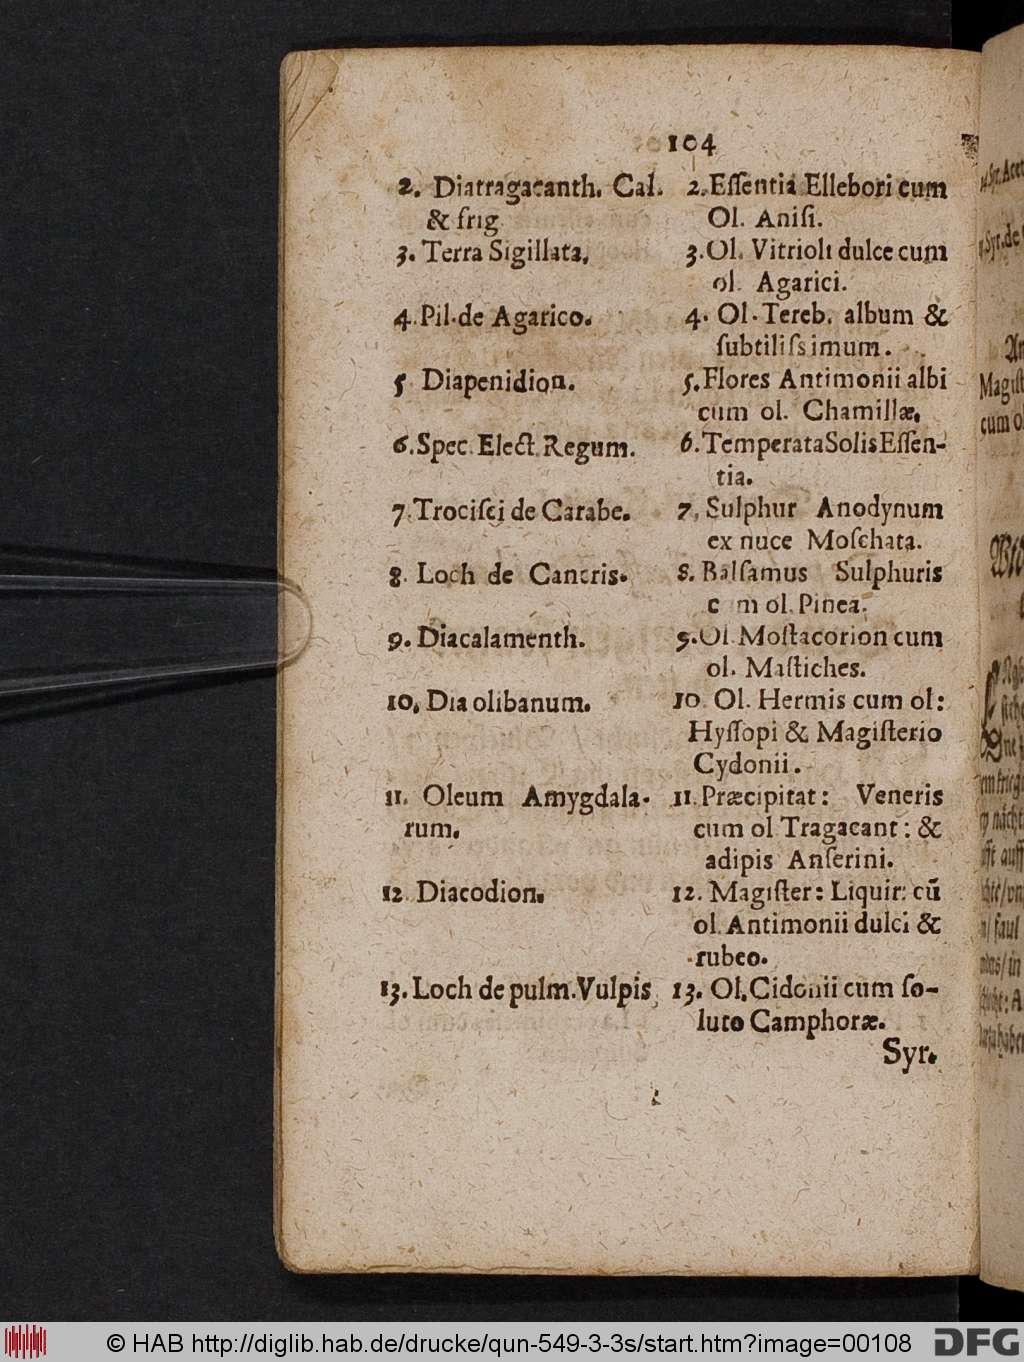 104
2. Diatragacanth. Cal.
& frig
3. Terra Sigillata.
4. Pil. de Agarico.
5 Diapenidion.
6. Spec. Elect. Regum.
7. Trociſci de Carabe.
8. Loch de Cancris.
9. Diacalamenth.
10. Dia olibanum.
11. Oleum Amygdala-
rum.
12 Diacodion.
13. Loch de pulm. Vulpis
2. Eſſentia Ellebori cum
Ol. Aniſi.
3. Ol. Vitrioli dulce cum
ol. Agarici.
4. Ol. Tereb. album &
ſubtiliſsimum.
5. Flores Antimonii albi
cum ol. Chamillæ.
6. Temperata Solis Eſſen-
tia.
7. Sulphur Anodynum
ex nuce Moſchata.
8. Balſamus Sulphuris
c m ol. Pinea.
9. Ol. Moſtacorion cum
ol. Maſtiches.
10. Ol. Hermis cum ol:
Hyſſopi & Magiſterio
Cydonii.
11. Præcipitat: Veneris
cum ol Tragacant: &
adipis Anſerini.
12. Magiſter: Liquir: cū
ol. Antimonii dulci &
rubeo.
13. Ol. Cidonii cum ſo-
luto Camphoræ.
Syr.
Magiſt
cum o
© HAB http://diglib.hab.de/drucke/qun-549-3-3s/start.htm?image=00108
DFG